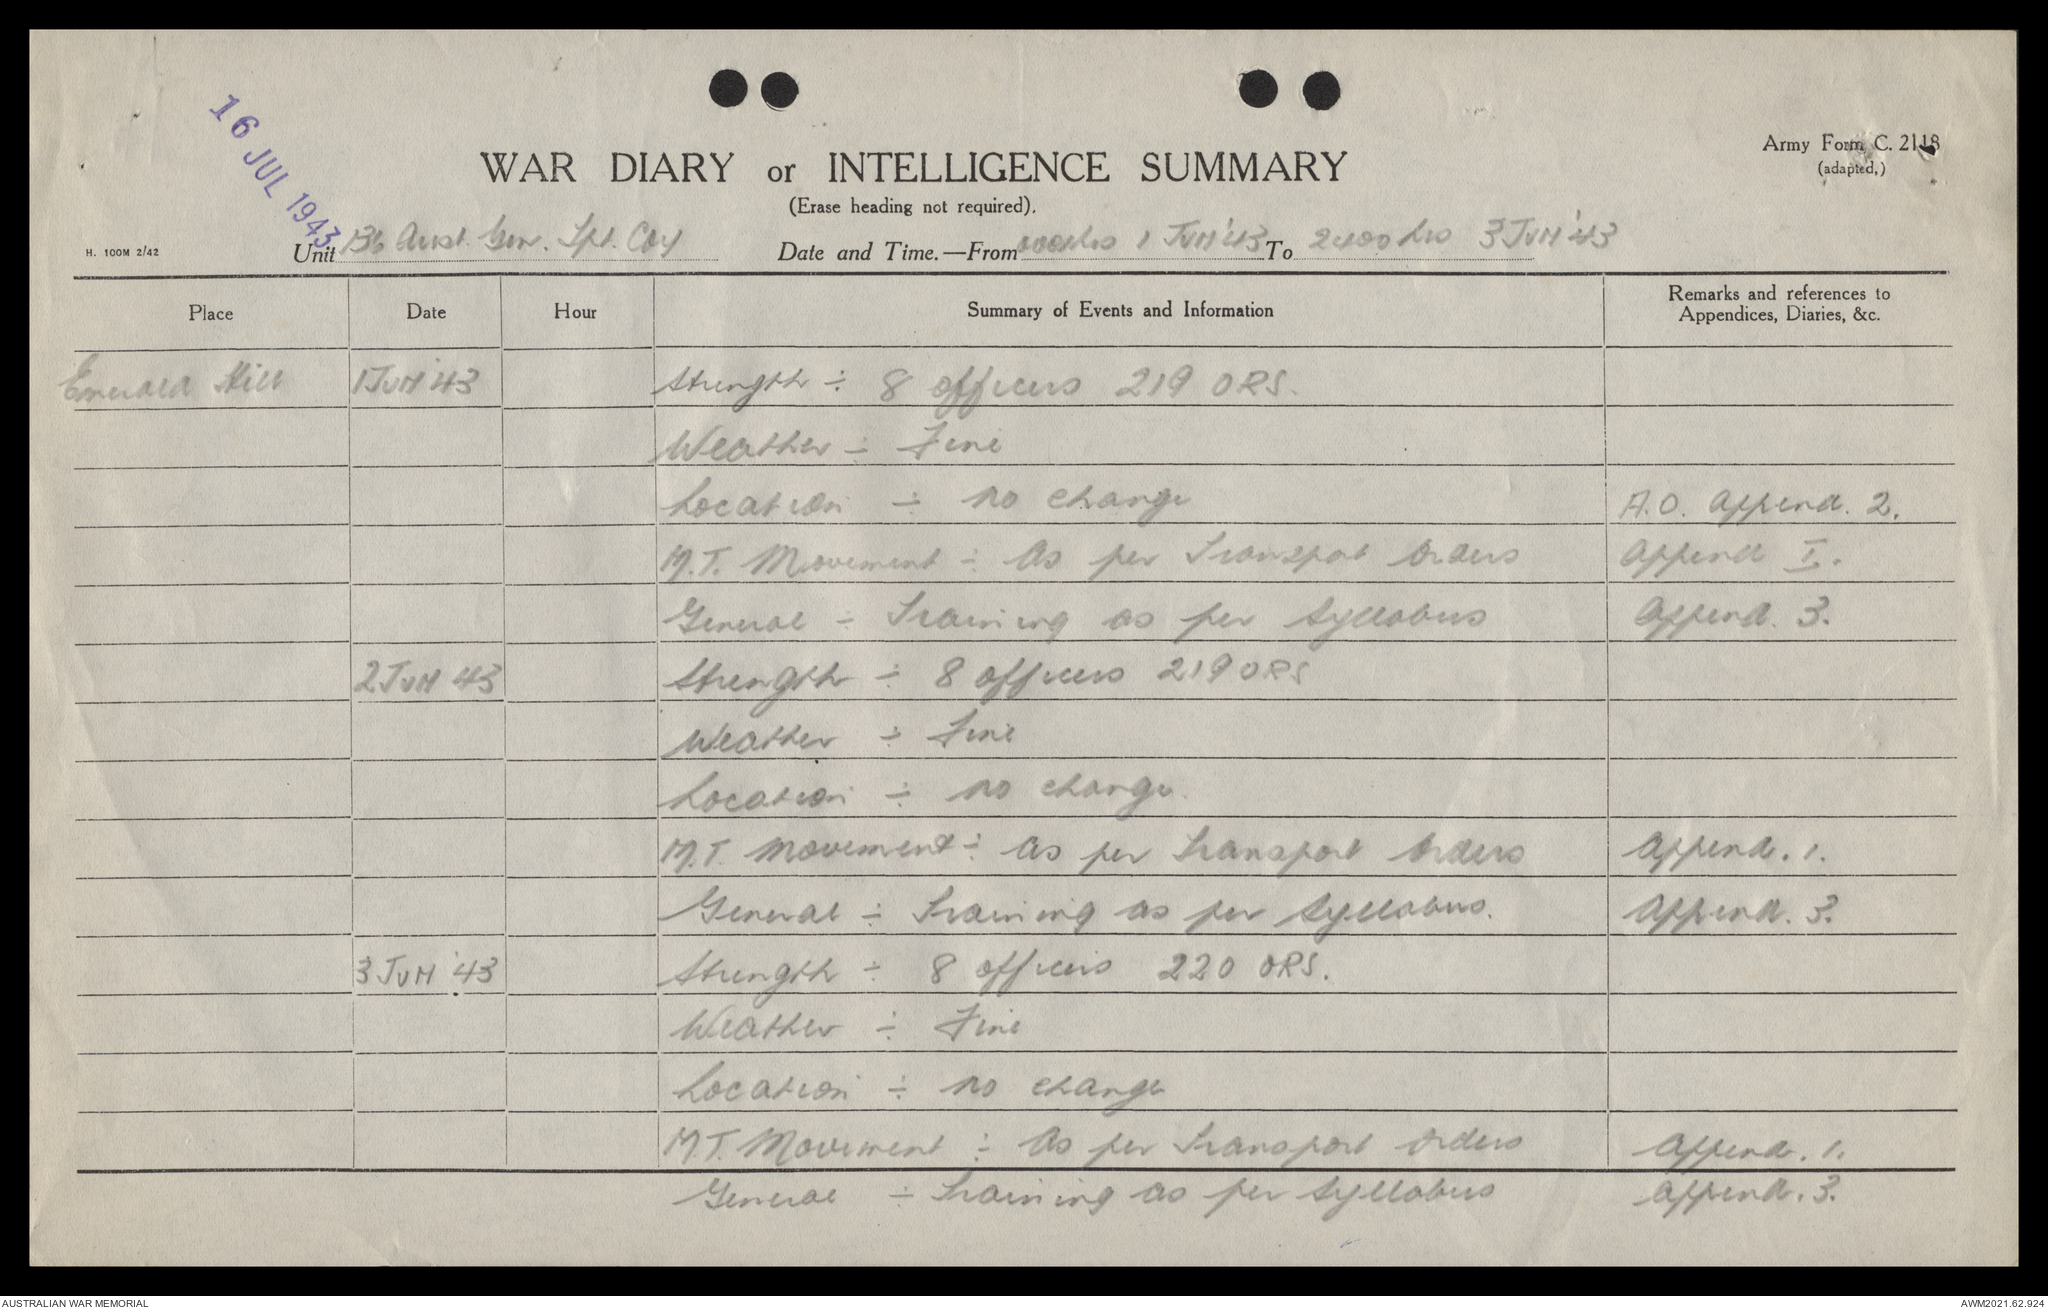 16 JUL 1943
WAR DIARY or INTELLIGENCE SUMMARY
(Erase heading not required).
Army Form C. 2118
(adapted,)
H. 100M 2/42
Unit 136 Aust. Gen. Tpt. Coy Date and Time.—From 0001hrs 1 JUN '43 To 2400 hrs 3 JUN '43
Place Date Hour Summary of Events and Information Remarks and references to
Appendices, Diaries, &c.
Emerald Hill 1 JUN '43 Strength ÷ 8 officers 219 ORS.
Weather ÷ Fine
Location ÷ no change A.O. Append. 2.
M.T. Movement ÷ As per Transport Orders Append I.
General ÷ Training as per Syllabus Append. 3.
2 JUN 43 Strength ÷ 8 officers 219 ORS
Weather ÷ Fine
Location ÷ no change.
M.T. Movement ÷ As per Transport Orders Append. 1.
General ÷ Training as per Syllabus. Append. 3.
3 JUN '43 Strength ÷ 8 officers 220 ORS.
Weather ÷ Fine
Location ÷ no change
M.T. Movement ÷ As per Transport Orders Append. 1.
General ÷ Training as per Syllabus Append. 3.
AUSTRALIAN WAR MEMORIAL AWM2021.62.924